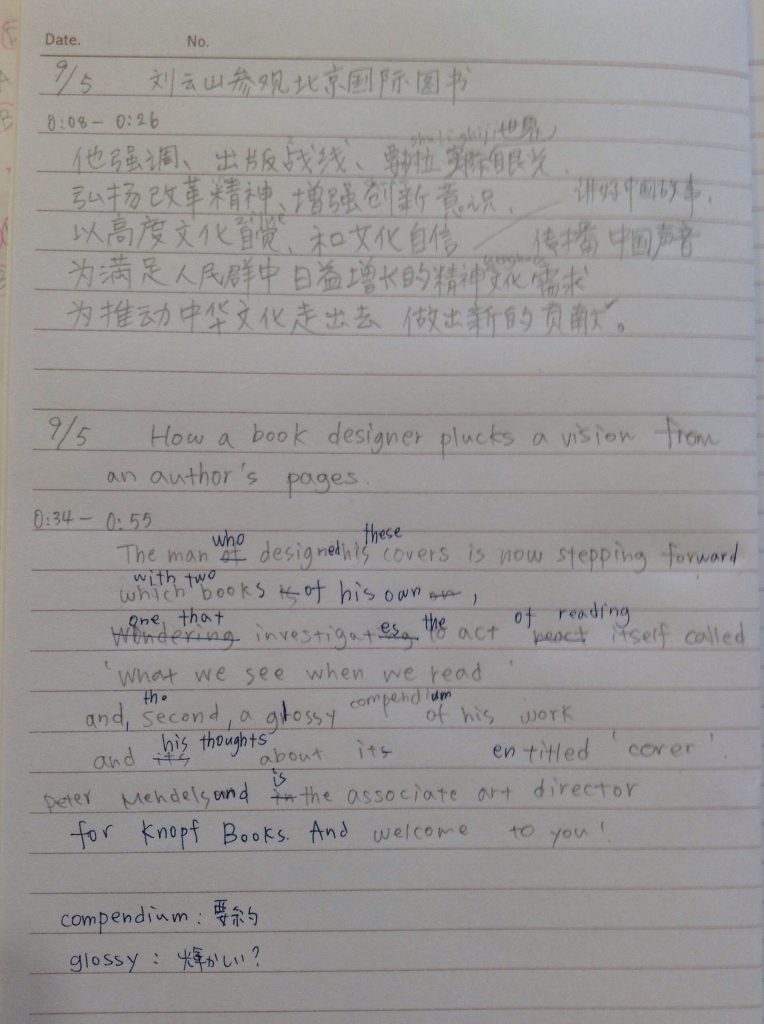 Date. No.
9/5 刘云山参观北京国际图书
0:08 - 0:26
shu li shi ji (世界)
他强调、出版战线、要
弘扬改革精神、增强创新意识、 讲好中国故事,
以高度文化自觉、和文化自信 传播中国声音
为满足人民群中日益增长的精神文化需求
为推动中华文化走出去 做出新的贡献。
9/5 How a book designer plucks a vision from
an author's pages.
0:34 - 0:55
who these
The man designed his covers is now stepping forward
with two
which books of his own ,
one, that es the of reading
Wondering investigat to act react itself called
'what we see when we read '
the compendium
and, second, a glossy of his work
his thoughts
and its about its entitled 'cover'.
is
Peter Mendelsand in the associate art director
for Knopf Books. And welcome to you!
compendium : 要約
glossy : 輝かしい?